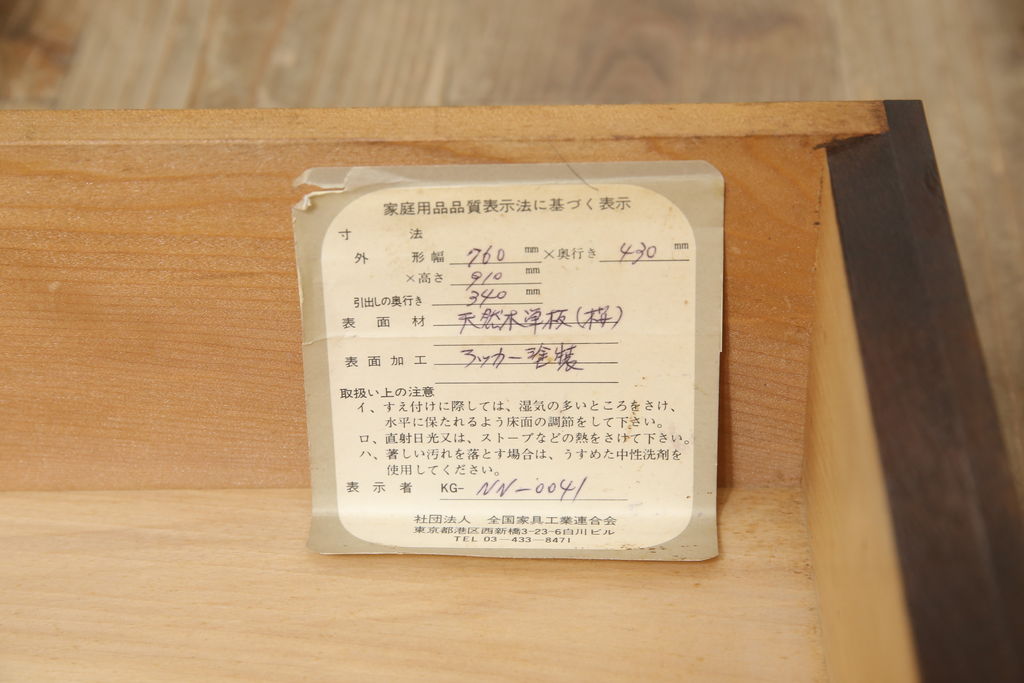 家庭用品品質表示法に基づく表示
寸法
外形幅 760 mm ×奥行き 430 mm
×高さ 910 mm
引出しの奥行き 340 mm
表面材 天然木単板(桜)
表面加工 ラッカー塗装
取扱い上の注意
イ、すえ付けに際しては、湿気の多いところをさけ、
水平に保たれるよう床面の調節をして下さい。
ロ、直射日光又は、ストーブなどの熱をさけて下さい。
ハ、著しい汚れを落とす場合は、うすめた中性洗剤を
使用してください。
表示者 KG- NN-0041
社団法人 全国家具工業連合会
東京都港区西新橋3-23-6白川ビル
TEL 03-433-8471